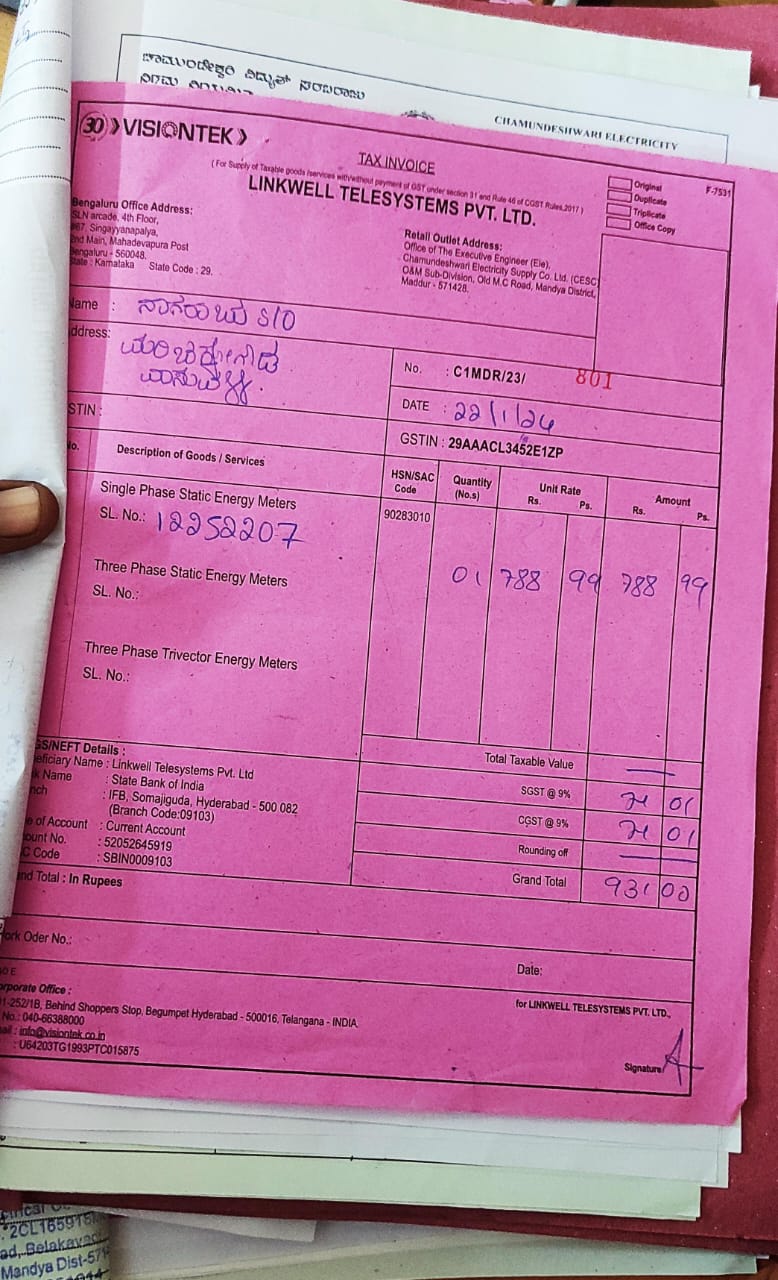 ಚಾಮುಂಡೇಶ್ವರಿ ವಿದ್ಯುತ್ ಸರಬರಾಜು
CHAMUNDESHWARI ELECTRICITY
30 VISIONTEK
TAX INVOICE
( For Supply of Taxable goods /services with/without payment of GST under section 31 and Rule 46 of CGST Rules,2017 )
LINKWELL TELESYSTEMS PVT. LTD.
Original
Duplicate
Triplicate
Office Copy
F-7531
Bengaluru Office Address:
SLN arcade, 4th Floor,
Singayyanapalya,
Main, Mahadevapura Post
Bengaluru - 560048.
State : Karnataka State Code : 29.
Retail Outlet Address:
Office of The Executive Engineer (Ele),
Chamundeshwari Electricity Supply Co. Ltd. (CESC)
O&M Sub-Division, Old M.C Road, Mandya District,
Maddur - 571428.
Name : ನಾಗರಾಜು S/O
Address:
No. : C1MDR/23/ 801
DATE : 22/1/24
GSTIN : 29AAACL3452E1ZP
Description of Goods / Services
HSN/SAC Code
Quantity (No.s)
Unit Rate Rs. Ps.
Amount Rs. Ps.
Single Phase Static Energy Meters 90283010
SL. No.: 12252207
Three Phase Static Energy Meters 01 788 99 788 99
SL. No.:
Three Phase Trivector Energy Meters
SL. No.:
NEFT Details :
Name : Linkwell Telesystems Pvt. Ltd
Name : State Bank of India
: IFB, Somajiguda, Hyderabad - 500 082
(Branch Code:09103)
of Account : Current Account
No. : 52052645919
Code : SBIN0009103
Total Taxable Value
SGST @ 9% 71 01
CGST @ 9% 71 01
Rounding off
Grand Total 931 00
Total : In Rupees
Oder No.:
Date:
Office :
1-252/1B, Behind Shoppers Stop, Begumpet Hyderabad - 500016, Telangana - INDIA.
No.: 040-66388000
: info@visiontek.co.in
: U64203TG1993PTC015875
for LINKWELL TELESYSTEMS PVT. LTD.,
Signature
Mandya Dist-571